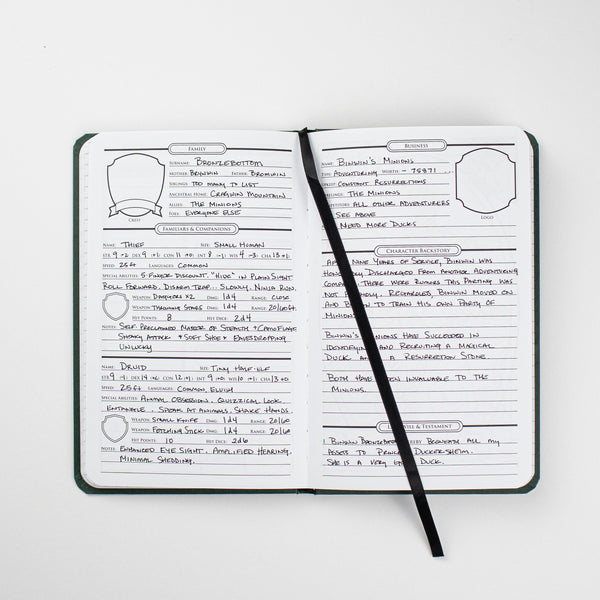 FAMILY
SURNAME: BRONZEBOTTOM
MOTHER: BRINWIN FATHER: BROMWIN
SIBLINGS: TOO MANY TO LIST
ANCESTRAL HOME: CRAGWIN MOUNTAIN
ALLIES: THE MINIONS
FOES: EVERYONE ELSE
CREST
FAMILIARS & COMPANIONS
NAME: THIEF SIZE: SMALL HUMAN
STR 9 -1: DEX 9 -1: CON 11 +0: INT 8 -1: WIS 4 -3: CHA 13 +1:
SPEED: 25ft LANGUAGES: COMMON
SPECIAL ABILITIES: 5-FINGER DISCOUNT. "HIDE" IN PLAIN SIGHT
ROLL FORWARD. DISARM TRAP. SLOWLY. NINJA RUN.
WEAPON: DAGGERS X2 DMG: 1d4 RANGE: CLOSE
WEAPON: THROWING STARS DMG: 1d4 RANGE: 20/60ft
HIT POINTS: 8 HIT DICE: 2d4
NOTES: SELF PROCLAIMED MASTER OF STEALTH & CAMOFLAGE
SNEAKY ATTACK & SOFT SHOE & EAVESDROPPING
UNLUCKY
NAME: DRUID SIZE: TINY HALF-ELF
STR 9 -1: DEX 14 +2: CON 12 +1: INT 9 -1: WIS 10 +0: CHA 13 +1:
SPEED: 25ft LANGUAGES: COMMON, ELVISH
SPECIAL ABILITIES: ANIMAL OBSESSION. QUIZZICAL LOOK.
ENTANGLE. SPEAK AT ANIMALS. SHAKE HANDS.
WEAPON: SMALL KNIFE DMG: 1d4 RANGE: 20/60
WEAPON: FETCHING STICK DMG: 1d4 RANGE: 20/60
HIT POINTS: 10 HIT DICE: 2d6
NOTES: ENHANCED EYE SIGHT. AMPLIFIED HEARING.
MINIMAL SHEDDING.
BUSINESS
NAME: BINWIN'S MINIONS
TYPE: ADVENTURING WORTH: -75871 ...
CONSTANT RESURRECTIONS
THE MINIONS
ALL OTHER ADVENTURERS
SEE ABOVE
NEED MORE DUCKS
LOGO
CHARACTER BACKSTORY
AFTER NINE YEARS OF SERVICE, BINWIN WAS
HONORABLY DISCHARGED FROM ANOTHER ADVENTURING
COMPANY. THERE WERE RUMORS THIS PARTING WAS
NOT FRIENDLY. REGARDLESS, BINWIN MOVED ON
AND BEGAN TO TRAIN HIS OWN PARTY OF
MINIONS.
BINWIN'S MINIONS HAVE SUCCEEDED IN
IDENTIFYING AND RECRUITING A MAGICAL
DUCK AND A RESURRECTION STONE.
BOTH HAVE BEEN INVALUABLE TO THE
MINIONS.
WILL & TESTAMENT
I BINWIN BRONZEBOTTOM HEREBY BEQUEATH ALL MY
ASSETS TO PRINCESS DUCKERSHEIM.
SHE IS A VERY GOOD DUCK.